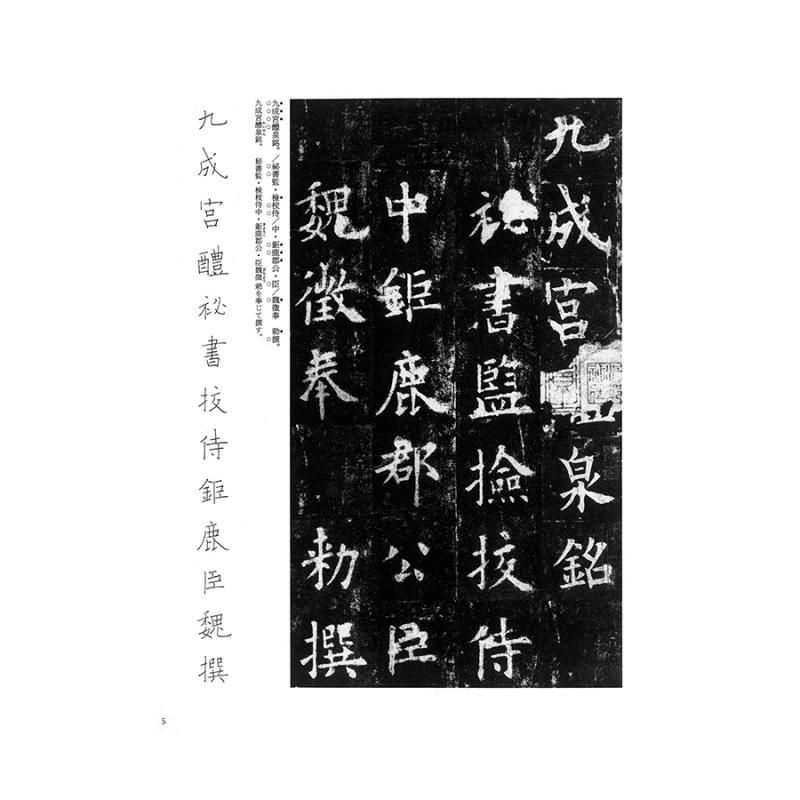 九成宮泉銘
祕書監撿挍侍
中鉅鹿郡公臣
魏徵奉 勅撰
九成宮醴泉銘。／祕書監・檢校侍／中・鉅鹿郡公・臣／魏徵奉 勅撰。
九成宮醴泉銘。 秘書監・検校侍中・鉅鹿郡公・臣魏徵 勅を奉じて撰す。
九成宮醴祕書挍侍鉅鹿臣魏撰
5